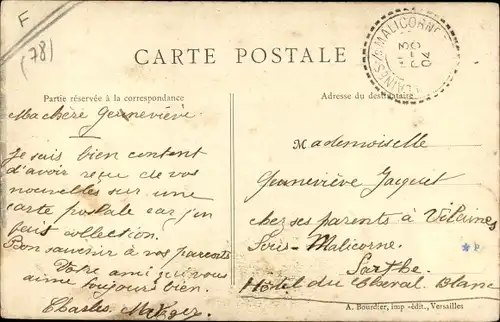 F
(78)
CARTE POSTALE
MALICORNE
04
Partie réservée à la correspondance
Adresse du destinataire
Ma chère Geneviève
Je suis bien content
d'avoir reçu de vos
nouvelles sur une
carte postale car j'en
fais collection.
Bon souvenir à vos parents
Votre ami qui vous
aime toujours bien.
Charles
Mademoiselle
Geneviève Jacquet
chez ses parents à Vilaines
Sous-Malicorne.
Sarthe
Hôtel du Cheval Blanc
A. Bourdier, imp-édit., Versailles